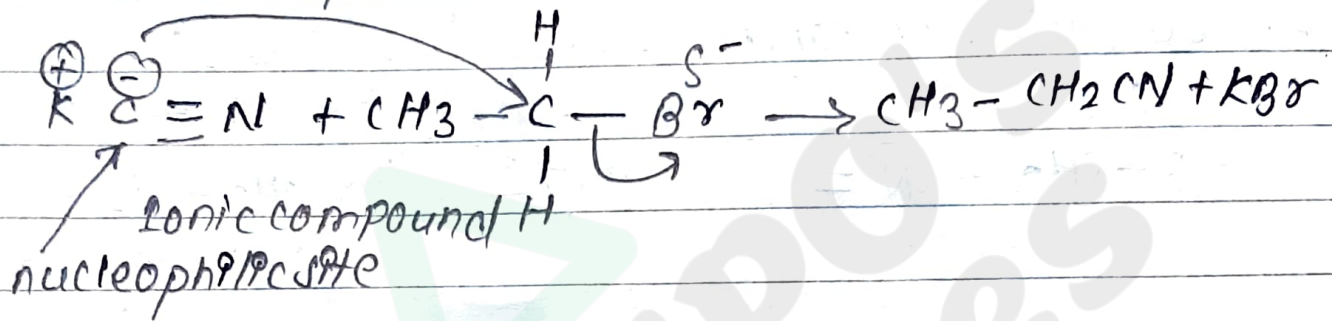 H
⊕ ⊖ δ-
K C ≡ N + CH3 - C - Br → CH3 - CH2CN + KBr
Ionic compound H
nucleophilic site